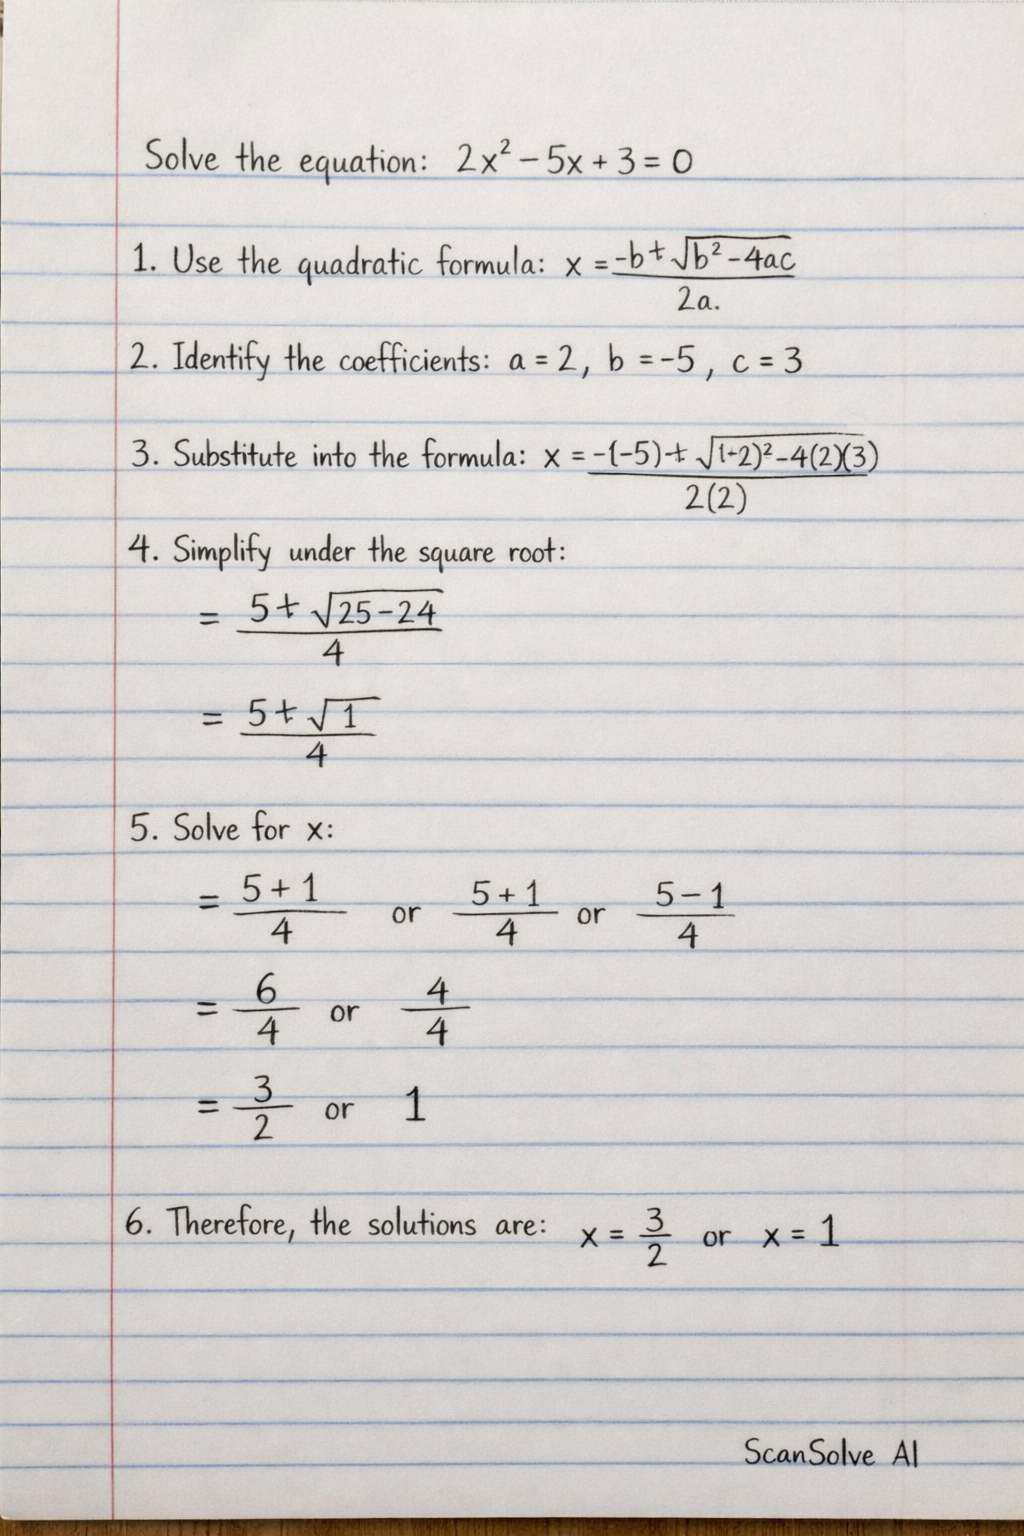 Solve the equation: 2x² - 5x + 3 = 0
1. Use the quadratic formula: x = -b + √b² - 4ac
2a.
2. Identify the coefficients: a = 2, b = -5, c = 3
3. Substitute into the formula: x = -(-5) + √(-2)² - 4(2)(3)
2(2)
4. Simplify under the square root:
= 5 + √25 - 24
4
= 5 + √1
4
5. Solve for x:
= 5 + 1 or 5 + 1 or 5 - 1
4 4 4
= 6 or 4
4 4
= 3 or 1
2
6. Therefore, the solutions are: x = 3 or x = 1
2
ScanSolve AI